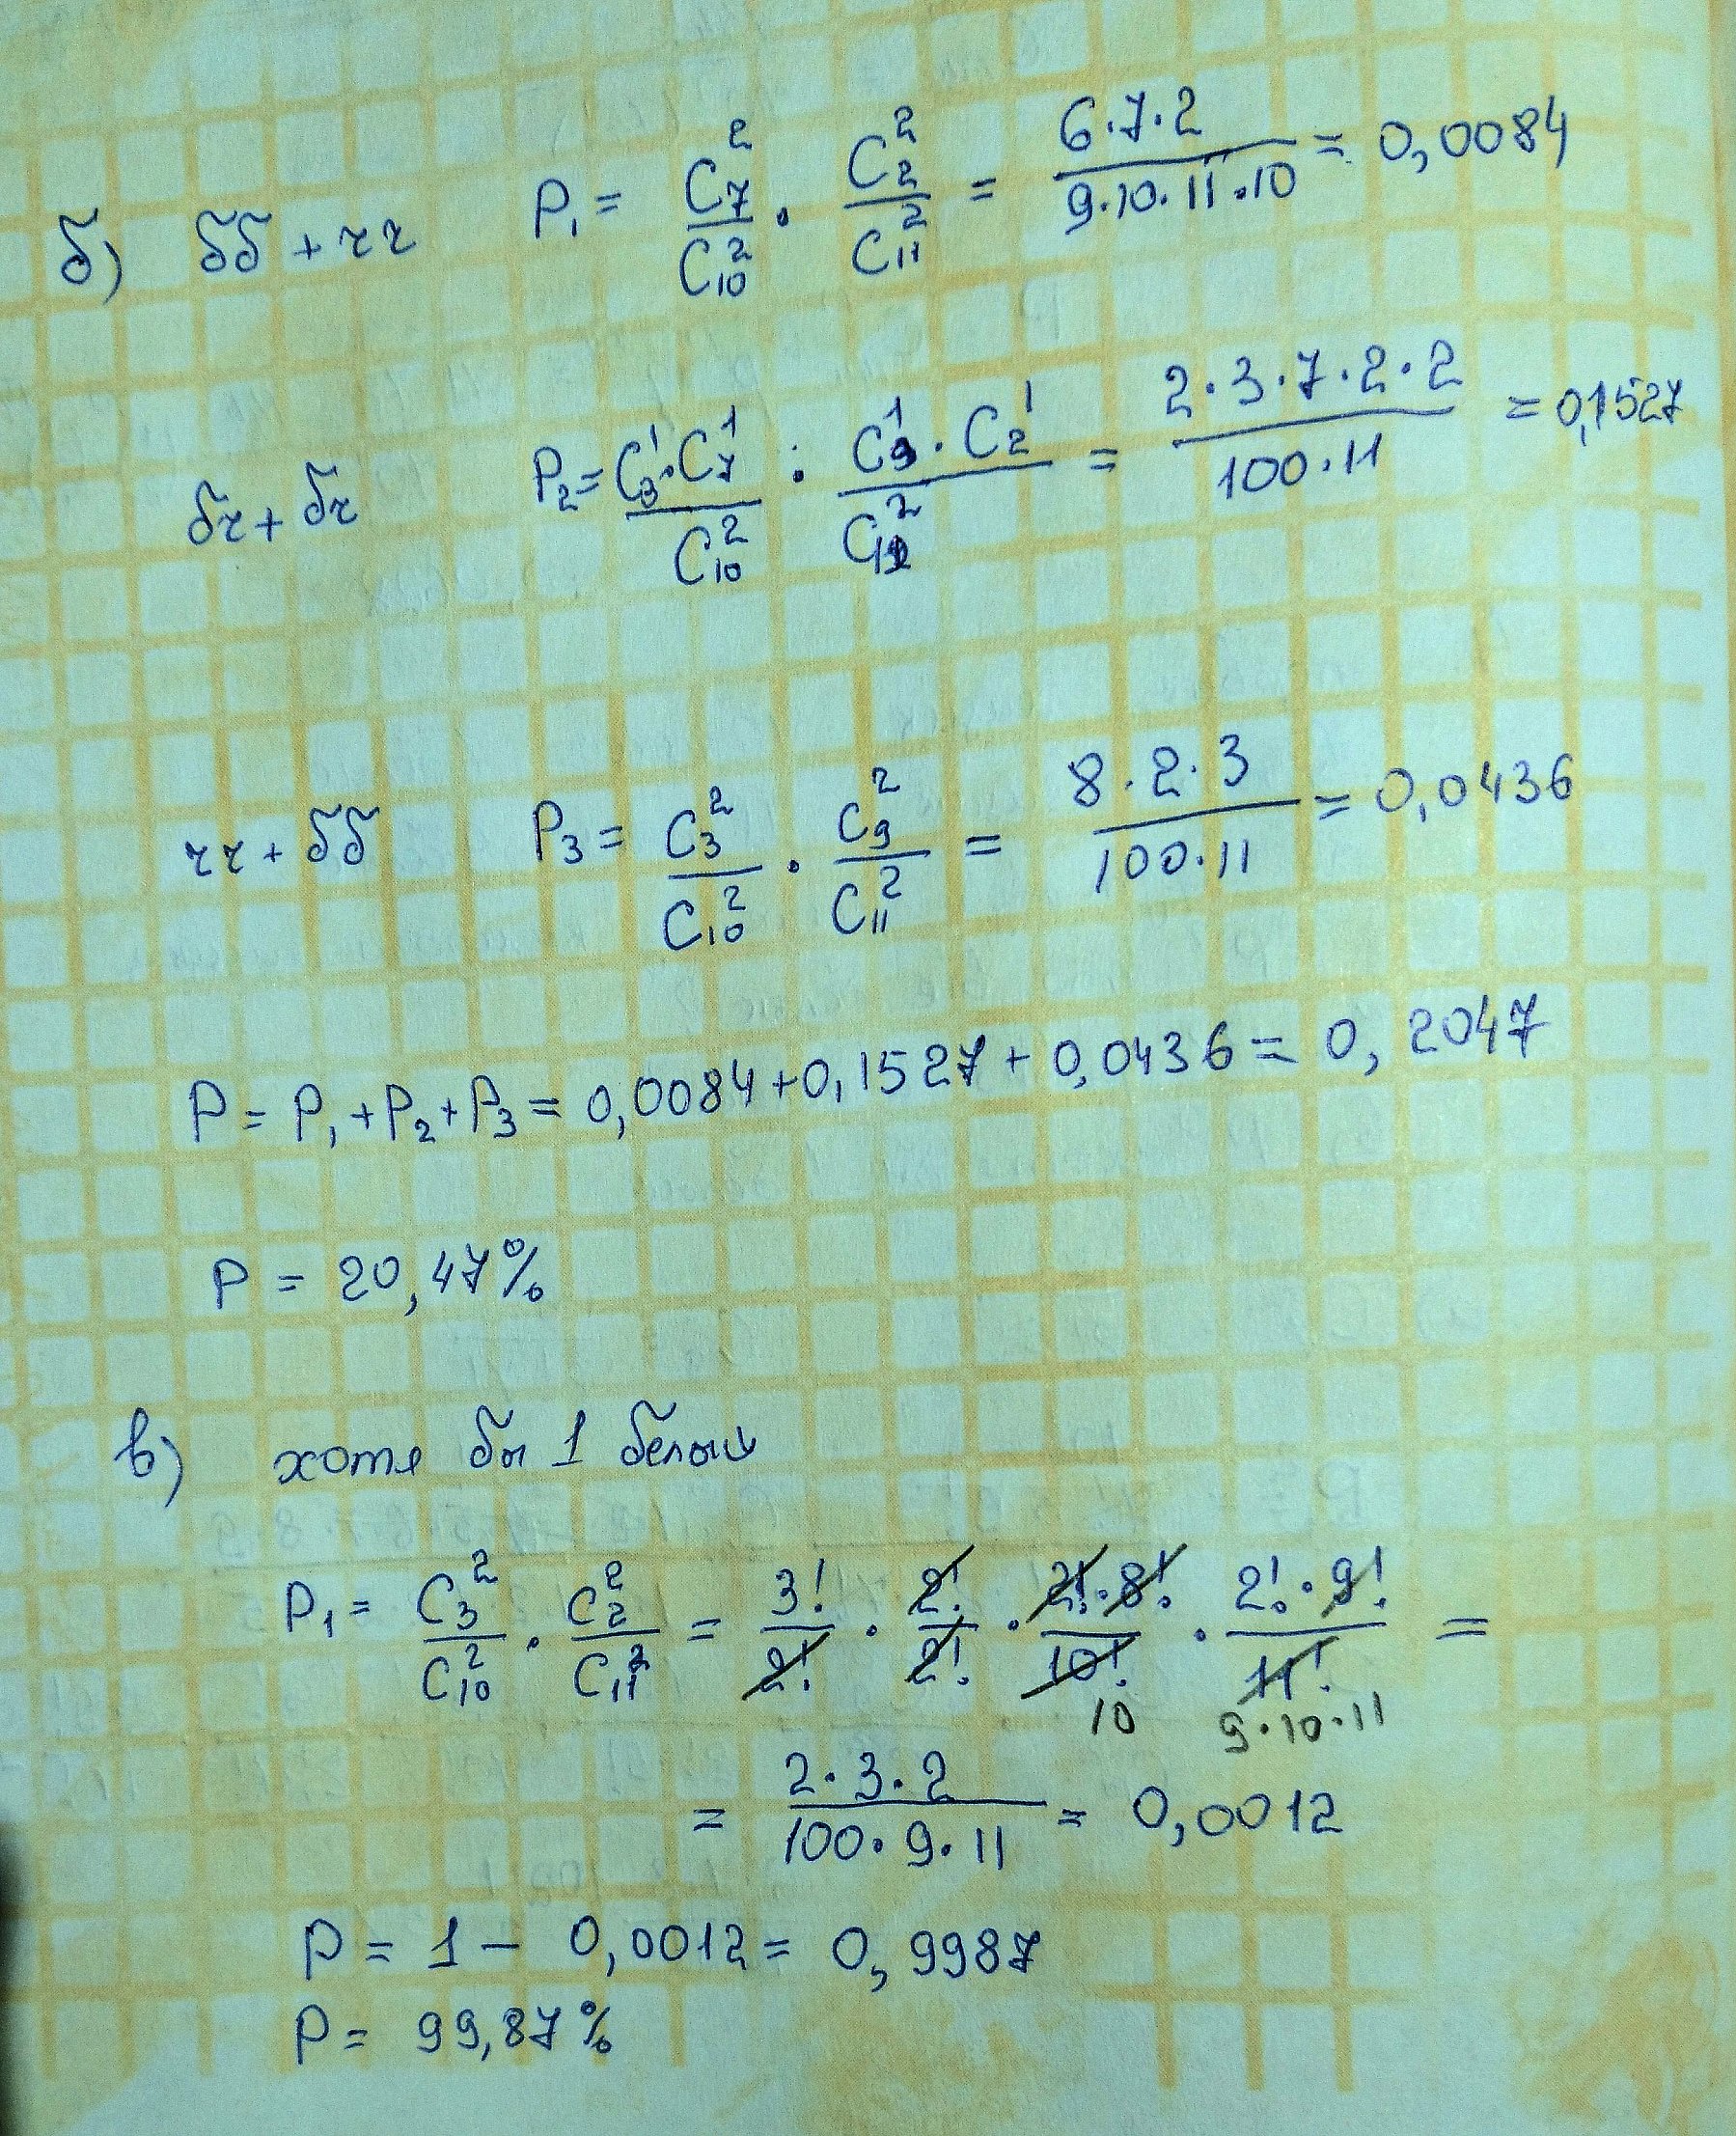 б) бб + чч P₁ = C₇²/C₁₀² · C₂²/C₁₁² = 6·7·2/9·10·11·10 = 0,0084
бч + бч P₂ = C₃¹·C₇¹/C₁₀² · C₉¹·C₂¹/C₁₁² = 2·3·7·2·2/100·11 = 0,1527
чч + бб P₃ = C₃²/C₁₀² · C₉²/C₁₁² = 8·2·3/100·11 = 0,0436
P = P₁ + P₂ + P₃ = 0,0084 + 0,1527 + 0,0436 = 0,2047
P = 20,47%
в) хотя бы 1 белый
P₁ = C₃²/C₁₀² · C₂²/C₁₁² = 3!/2! · 2!/2! · 2!·8!/10! · 2!·9!/11! =
10 9·10·11
= 2·3·2/100·9·11 = 0,0012
P = 1 – 0,0012 = 0,9987
P = 99,87%